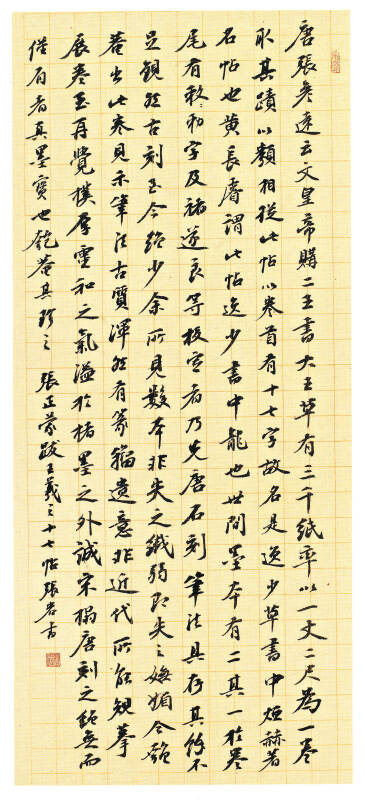 唐張彥遠云文皇帝購二王書大王草有三千紙率以一丈二尺為一卷
取其蹟以類相從此帖以卷首有十七字故名是逸少草書中烜赫著
名帖也黃長睿謂此帖逸少書中龍也世間墨本有二其一於卷
尾有敕勒字及褚遂良等校官者乃先唐石刻筆法具存其餘不
足觀然古刻至今絕少余所見數本非失之纖弱即失之媚今韜
菴出此卷見示筆法古質渾然有篆籀遺意非近代所能規摹
展卷至再覺樸厚靈和之氣溢於楮墨之外誠宋搨唐刻之絕無而
僅有者真墨寶也菴其珍之 張正蒙跋王羲之十七帖張書